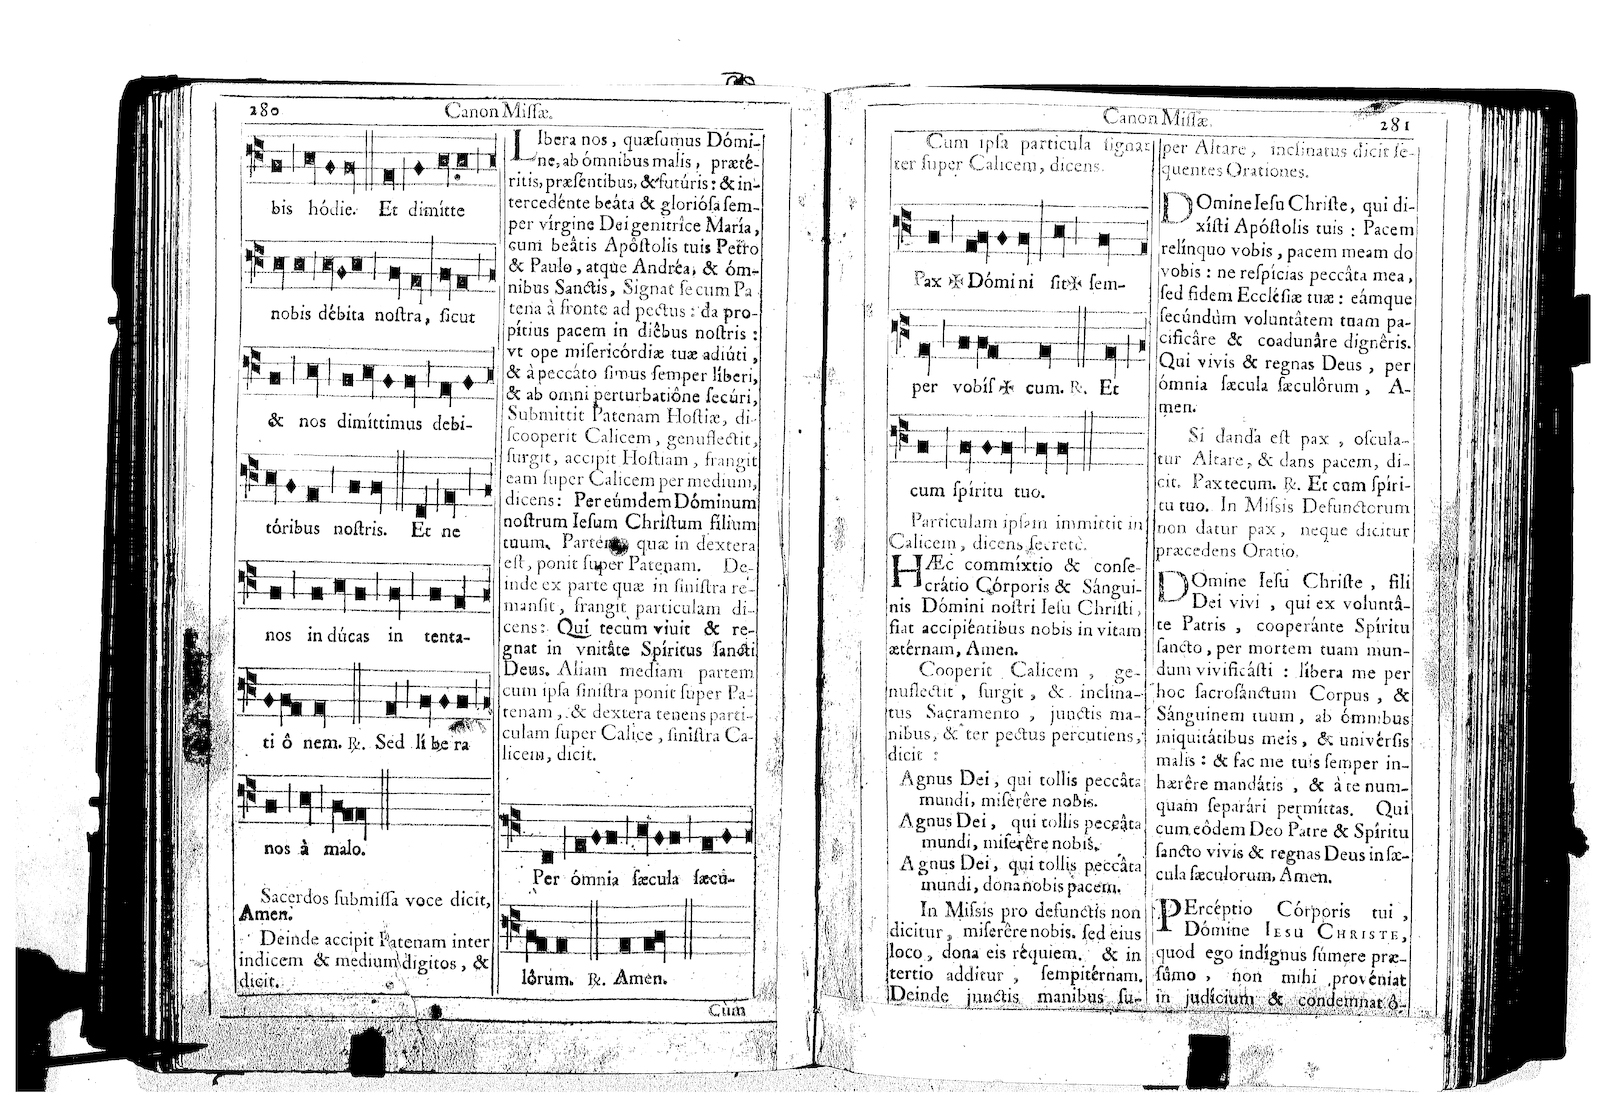 280
Canon Miſſæ.
bis hódie. Et dimítte
nobis débita noſtra, ſicut
& nos dimíttimus debi-
tóribus noſtris. Et ne
nos in dúcas in tenta-
ti ô nem. ℟. Sed lí be ra
nos à malo.
Sacerdos ſubmiſſa voce dicit,
Amen.
Deinde accipit Patenam inter
indicem & medium digitos, &
dicit.
LIbera nos, quæſumus Dómi-
ne, ab ómnibus malis, præté-
ritis, præſentibus, & futúris: & in-
tercedénte beáta & glorióſa ſem-
per vírgine Dei genitríce María,
cum beâtis Apóſtolis tuis Petro
& Paulo, atque Andréa, & óm-
nibus Sanctis, Signat ſe cum Pa
tena à fronte ad pectus: da pro-
pítius pacem in diêbus noſtris:
vt ope miſericórdiæ tuæ adiúti,
& à peccáto ſimus ſemper líberi,
& ab omni perturbatiône ſecúri,
Submittit Patenam Hoſtiæ, di-
ſcooperit Calicem, genuflectit,
ſurgit, accipit Hoſtiam, frangit
eam ſuper Calicem per medium,
dicens: Per eúmdem Dóminum
noſtrum Ieſum Chriſtum filium
tuum. Partem quæ in dextera
eſt, ponit ſuper Patenam. De-
inde ex parte quæ in ſiniſtra re-
manſit, frangit particulam di-
cens: Qui tecum viuit & re-
gnat in vnitâte Spíritus ſancti
Deus. Aliam mediam partem
cum ipſa ſiniſtra ponit ſuper Pa-
tenam, & dextera tenens parti-
culam ſuper Calice, ſiniſtra Ca-
licem, dicit.
Per ómnia ſæcula ſæcu-
lôrum. ℟. Amen.
Cùm
Canon Miſſæ.
281
Cum ipſa particula ſignat
ter ſuper Calicem, dicens.
Pax ✠ Dómini ſit ✠ ſem-
per vobíſ ✠ cum. ℟. Et
cum ſpíritu tuo.
Particulam ipſam immittit in
Calicem, dicens ſecretè.
HÆc commíxtio & conſe-
crátio Córporis & Sángui-
nis Dómini noſtri Ieſu Chriſti,
fiat accipiéntibus nobis in vitam
ætérnam, Amen.
Cooperit Calicem, ge-
nuflectit, ſurgit, & inclina-
tus Sacramento, junctis ma-
nibus, & ter pectus percutiens,
dicit:
Agnus Dei, qui tollis peccâta
mundi, miſerêre nobis.
Agnus Dei, qui tollis peccâta
mundi, miſerêre nobis.
Agnus Dei, qui tollis peccâta
mundi, dona nobis pacem.
In Miſsis pro defunctis non
dicitur, miſerêre nobis. ſed eius
loco, dona eis réquiem. & in
tertio additur, ſempitérnam.
Deinde junctis manibus ſu-
per Altare, inclinatus dicit ſe-
quentes Orationes.
DOmine Ieſu Chriſte, qui di-
xíſti Apóſtolis tuis: Pacem
relínquo vobis, pacem meam do
vobis: ne reſpícias peccâta mea,
ſed fidem Eccléſiæ tuæ: eámque
ſecúndùm voluntâtem tuam pa-
cificâre & coadunâre dignêris.
Qui vivis & regnas Deus, per
ómnia ſæcula ſæculôrum, A-
men.
Si danda eſt pax, oſcula-
tur Altare, & dans pacem, di-
cit. Pax tecum. ℟. Et cum ſpíri-
tu tuo. In Miſsis Defunctorum
non datur pax, neque dicitur
præcedens Oratio.
DOmine Ieſu Chriſte, fili
Dei vivi, qui ex voluntâ-
te Patris, cooperánte Spíritu
ſancto, per mortem tuam mun-
dum vivificáſti: líbera me per
hoc ſacroſánctum Corpus, &
Sánguinem tuum, ab ómnibus
iniquitátibus meis, & univérſis
malis: & fac me tuis ſemper in-
hærêre mandátis, & à te num-
quam ſeparári permíttas. Qui
cum eôdem Deo Patre & Spíritu
ſancto vivis & regnas Deus in ſæ-
cula ſæculorum, Amen.
PErcéptio Córporis tui,
Dómine IESU CHRISTE,
quod ego indígnus ſúmere præ-
ſûmo, non mihi provéniat
in judícium & condemnatiô-